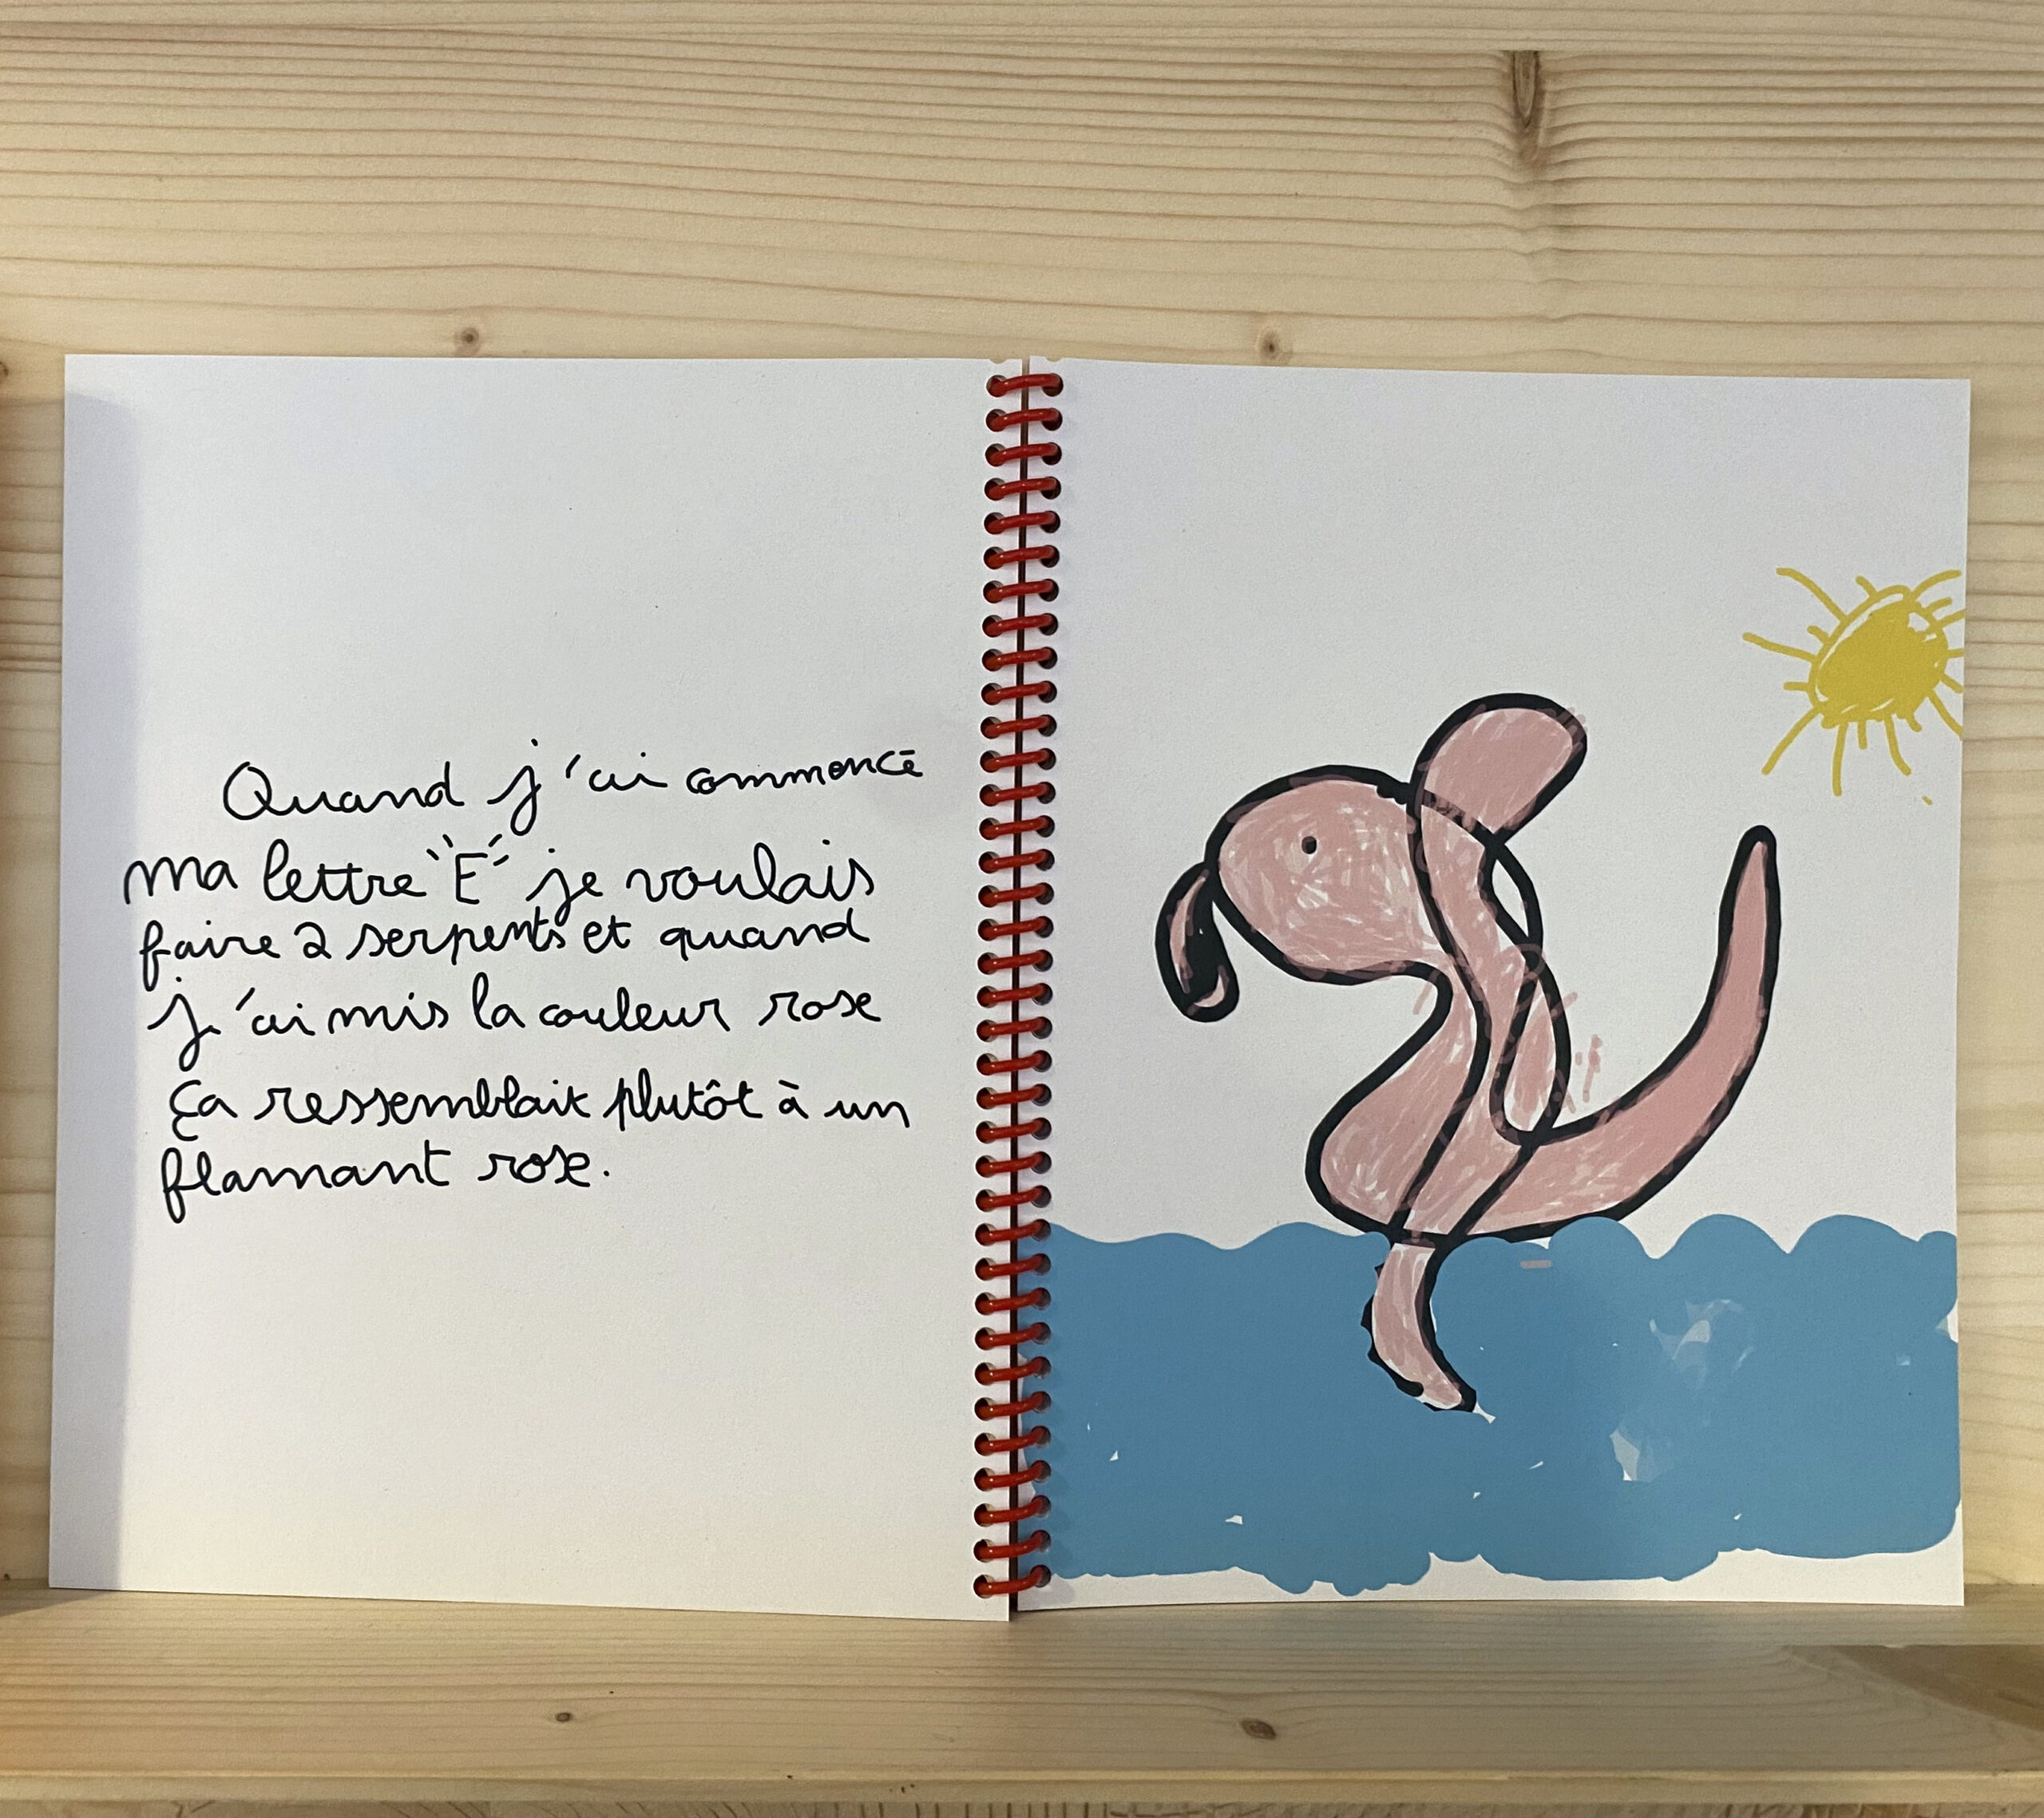 Quand j'ai commencé
ma lettre "E" je voulais
faire 2 serpents et quand
j'ai mis la couleur rose
ça ressemblait plutôt à un
flamant rose.